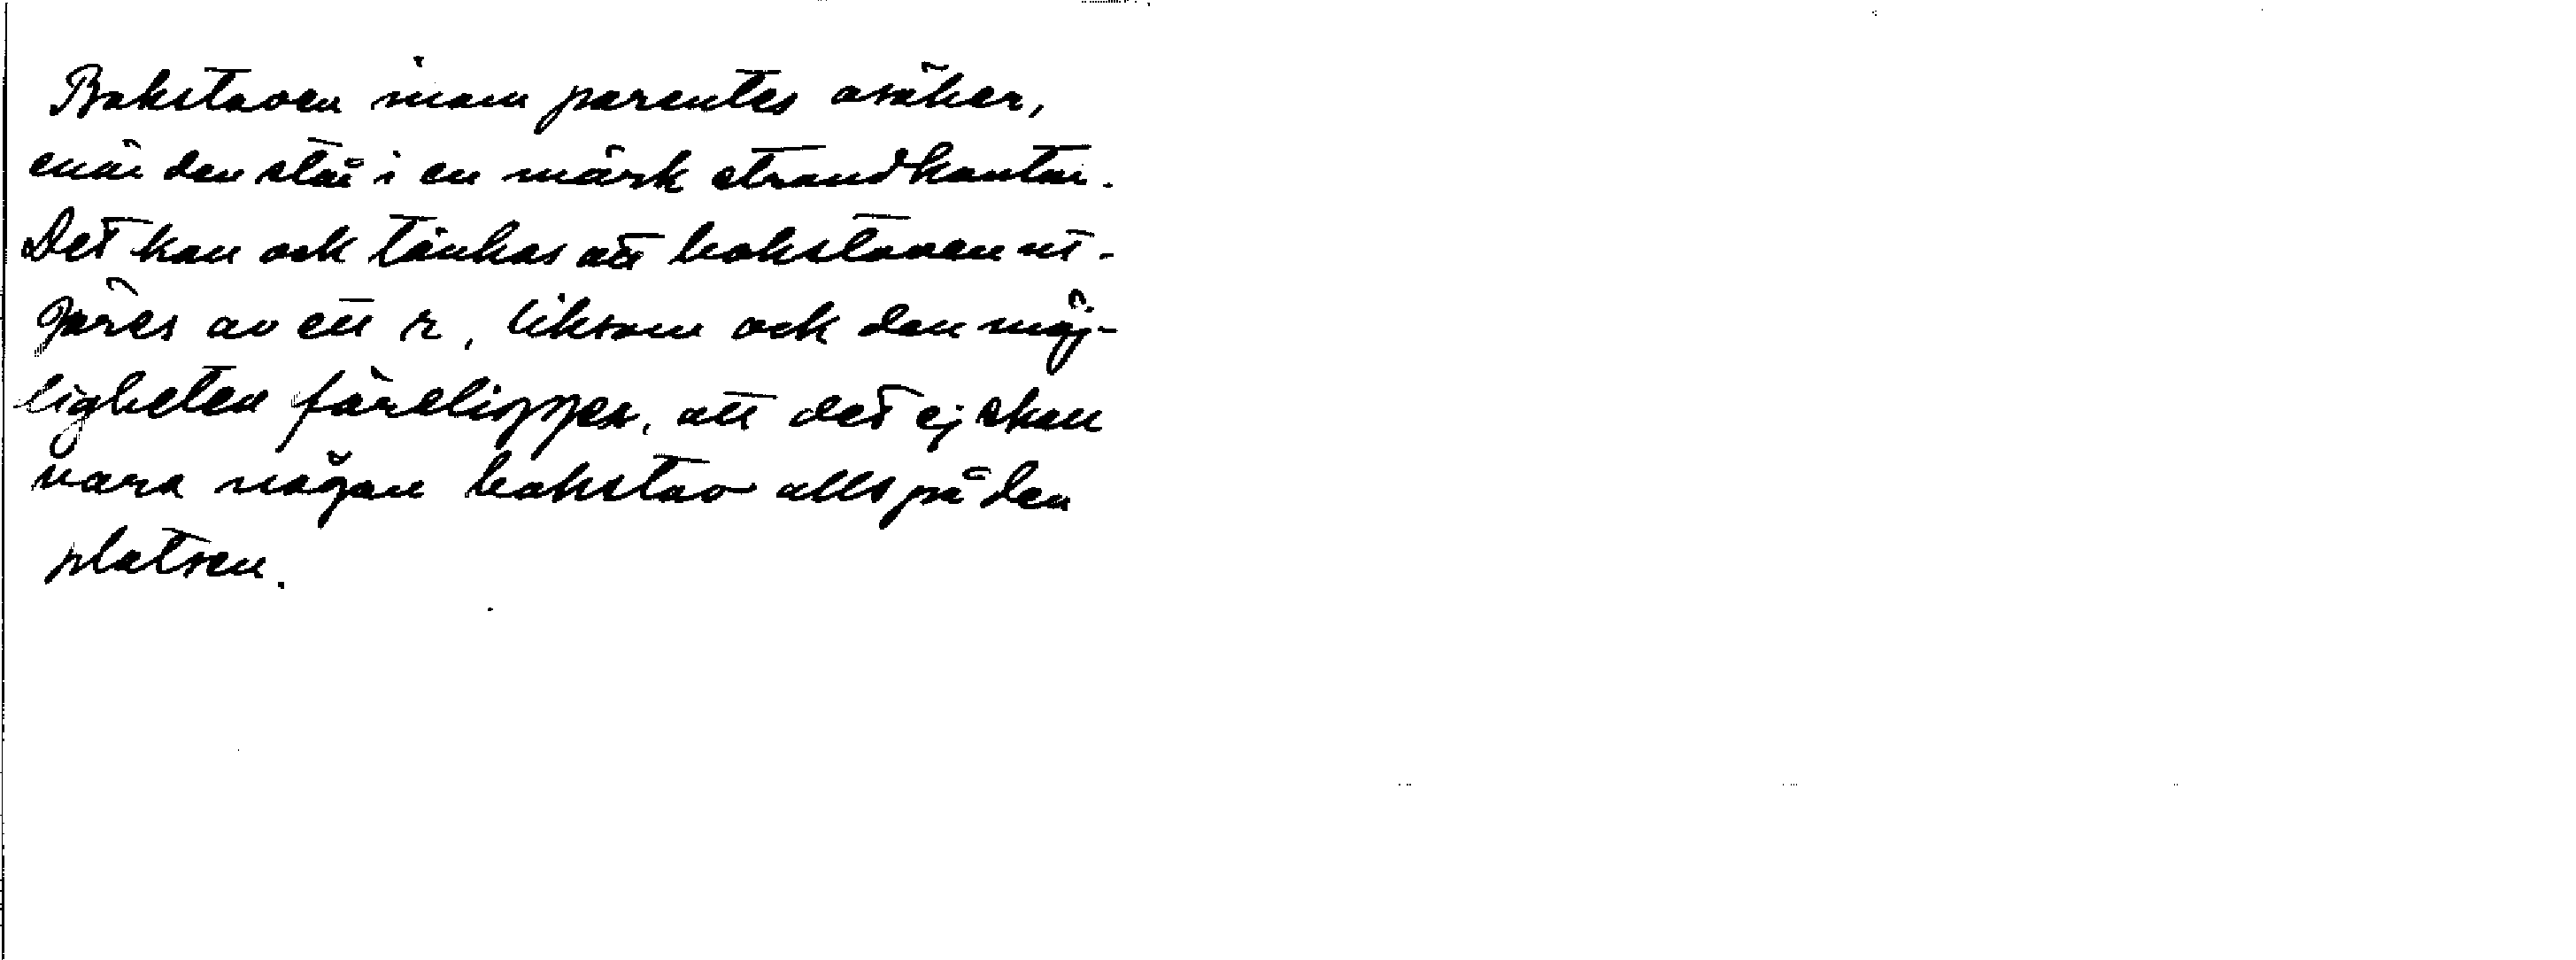 Bokstaven inom parentes osäker,
enär den står i en mörk strandkontur.
Det kan ock tänkas att bokstaven ut-
göres av ett r, liksom ock den möj-
ligheten föreligger, att det ej skall
vara någon bokstav alls på den
platsen.